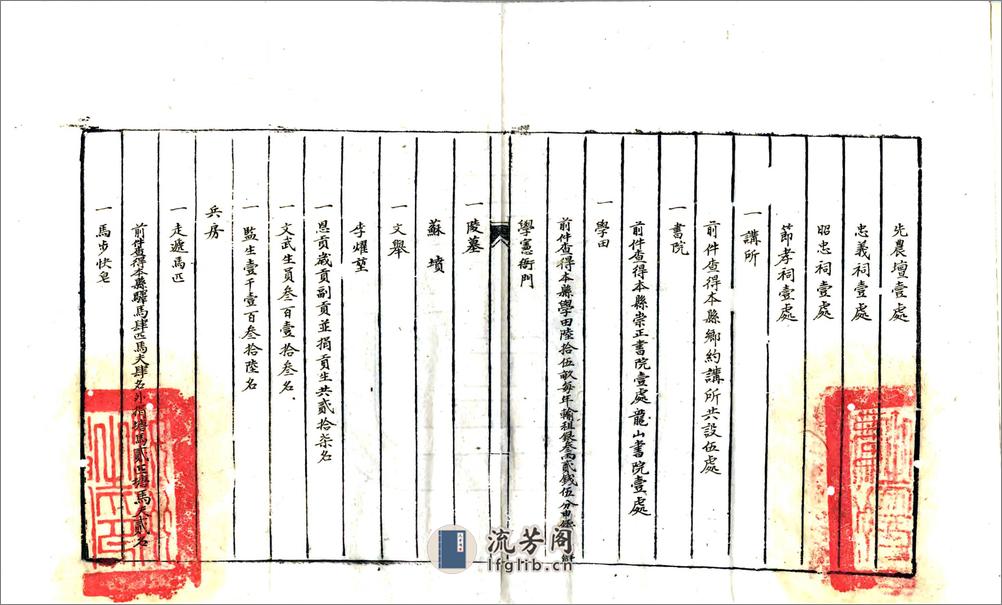 先農壇壹處
忠義祠壹處
昭忠祠壹處
節孝祠壹處
一講所
前件查得本縣鄉約講所共設伍處
一書院
前件查得本縣崇正書院壹處龍山書院壹處
一學田
前件查得本縣學田陸拾伍畝每年輸租銀叁兩貳錢伍分
學憲衙門
一陵墓
蘇墳
一文舉
李耀堃
一恩貢歲貢副貢並捐貢生共貳拾柒名
一文武生員叁百壹拾叁名
一監生壹千壹百叁拾陸名
兵房
一走遞馬匹
前件查得本縣驛馬肆匹馬夫肆名外有塘馬貳匹塘馬夫貳名
一馬步快皂
流芳阁
lfglib.cn